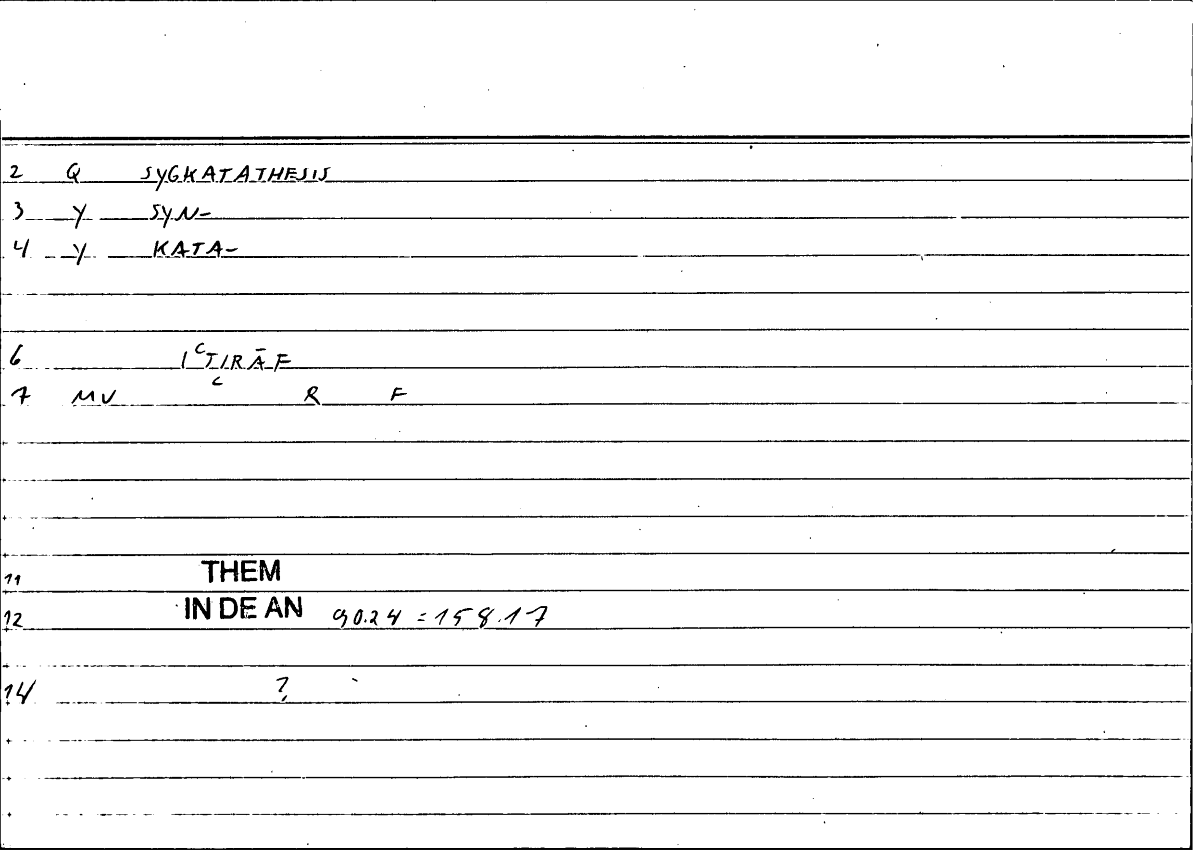 2 Q SYGKATATHESIS
3 Y SYN-
4 Y KATA-
6 IᶜTIRĀF
7 MV c R F
11 THEM
12 IN DE AN 90.24 = 158.17
14 ?